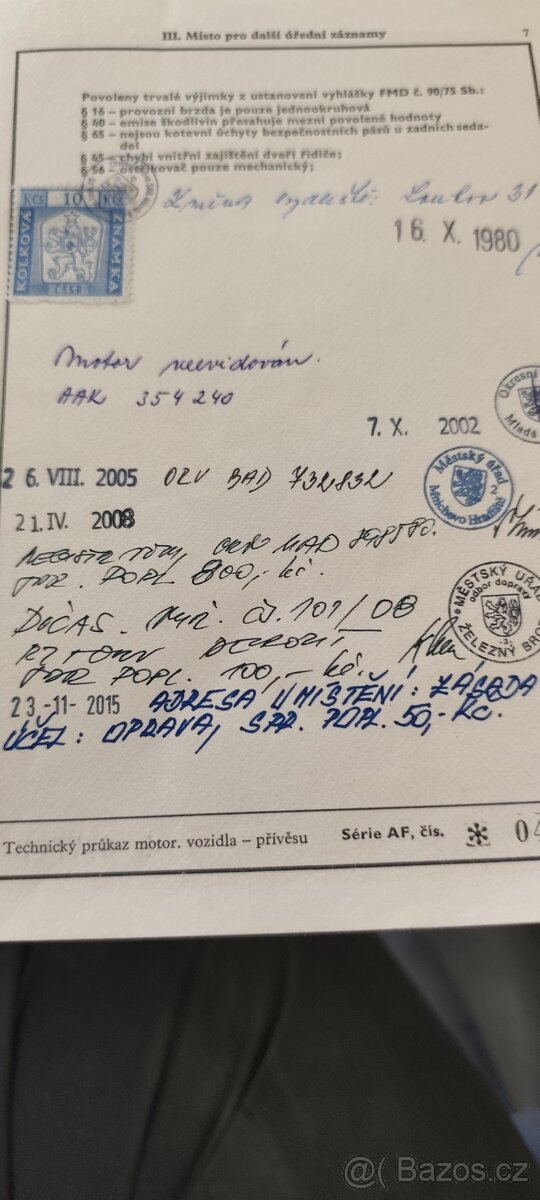 III. Místo pro další úřední záznamy 7
Povoleny trvalé výjimky z ustanovení vyhlášky FMD č. 90/75 Sb.:
§ 16 – provozní brzda je pouze jednookruhová
§ 40 – emise škodlivin přesahuje mezní povolené hodnoty
§ 65 – nejsou kotevní úchyty bezpečnostních pásů u zadních seda-
del
§ 45 – chybí vnitřní zajištění dveří řidiče;
§ 56 – ostřikovač pouze mechanický;
KČS 10 KČS
KOLKOVÁ
ZNÁMKA
ČSSR
Změna bydliště: Loukov 31
16. X. 1980
Motor neevidován.
AAK 354 240
Okresní
Mladá
7. X. 2002
26. VIII. 2005 OZV BAD 732832
Městský úřad
2
Mnichovo Hradiště
21. IV. 2008
POPL 800,- Kč.
DOČAS. VYŘ. ČJ. 101/08
POPL. 100,- Kč.
MĚSTSKÝ ÚŘAD
odbor dopravy
-3-
ŽELEZNÝ BROD
23 -11- 2015 ADRESA UMÍSTĚNÍ: ZÁSADA
ÚČEL: OPRAVA, SPR. POPL. 50,- Kč.
Technický průkaz motor. vozidla – přívěsu Série AF, čís. 04
@( Bazoš.cz